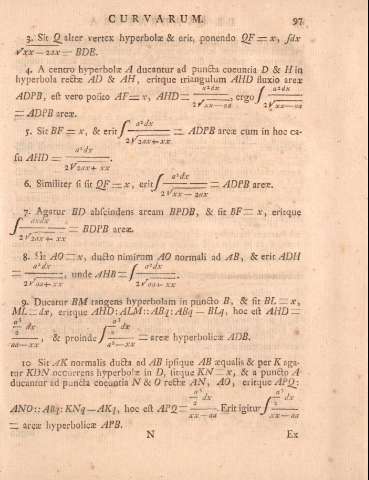 CURVARUM. 97
3. Sit Q alter vertex hyperbolæ & erit, ponendo QF = x, ∫dx
√xx − 2ax = BDE.
4. A centro hyperbolæ A ducantur ad puncta coeuntia D & H in
hyperbola rectæ AD & AH, eritque triangulum AHD fluxio areæ
ADPB, est vero posito AF = x, AHD = a²dx / 2√xx − aa, ergo ∫ a²dx / 2√xx − aa
= ADPB areæ.
5. Sit BF = x, & erit ∫ a²dx / 2√2ax + xx = ADPB areæ cum in hoc ca-
su AHD = a²dx / 2√2ax + xx.
6. Similiter si sit QF = x, erit ∫ a²dx / 2√xx − 2ax = ADPB areæ.
7. Agatur BD abscindens aream BPDB, & sit BF = x, eritque
∫ axdx / 2√2ax + xx = BDPB areæ.
8. Sit AO = x, ducto nimirum AO normali ad AB, & erit ADH
= a²dx / 2√aa + xx, unde AHB = ∫ a²dx / 2√aa + xx.
9. Ducatur BM tangens hyperbolam in puncto B, & sit BL = x,
ML = dx, eritque AHD : ALM :: ABq : ABq − BLq, hoc est AHD =
a³/2 dx / aa − xx, & proinde ∫ a³/2 dx / a² − xx = areæ hyperbolicæ ADB.
10 Sit AK normalis ducta ad AB ipsique AB æqualis & per K aga-
tur KDN occurrens hyperbolæ in D, sitque KN = x, & a puncto A
ducantur ad puncta coeuntia N & O rectæ AN, AO, eritque APQ :
ANO :: ABq : KNq − AKq, hoc est APQ = a³/2 dx / xx − aa. Erit igitur ∫ a³/2 dx / xx − aa
= areæ hyperbolicæ APB.
N Ex